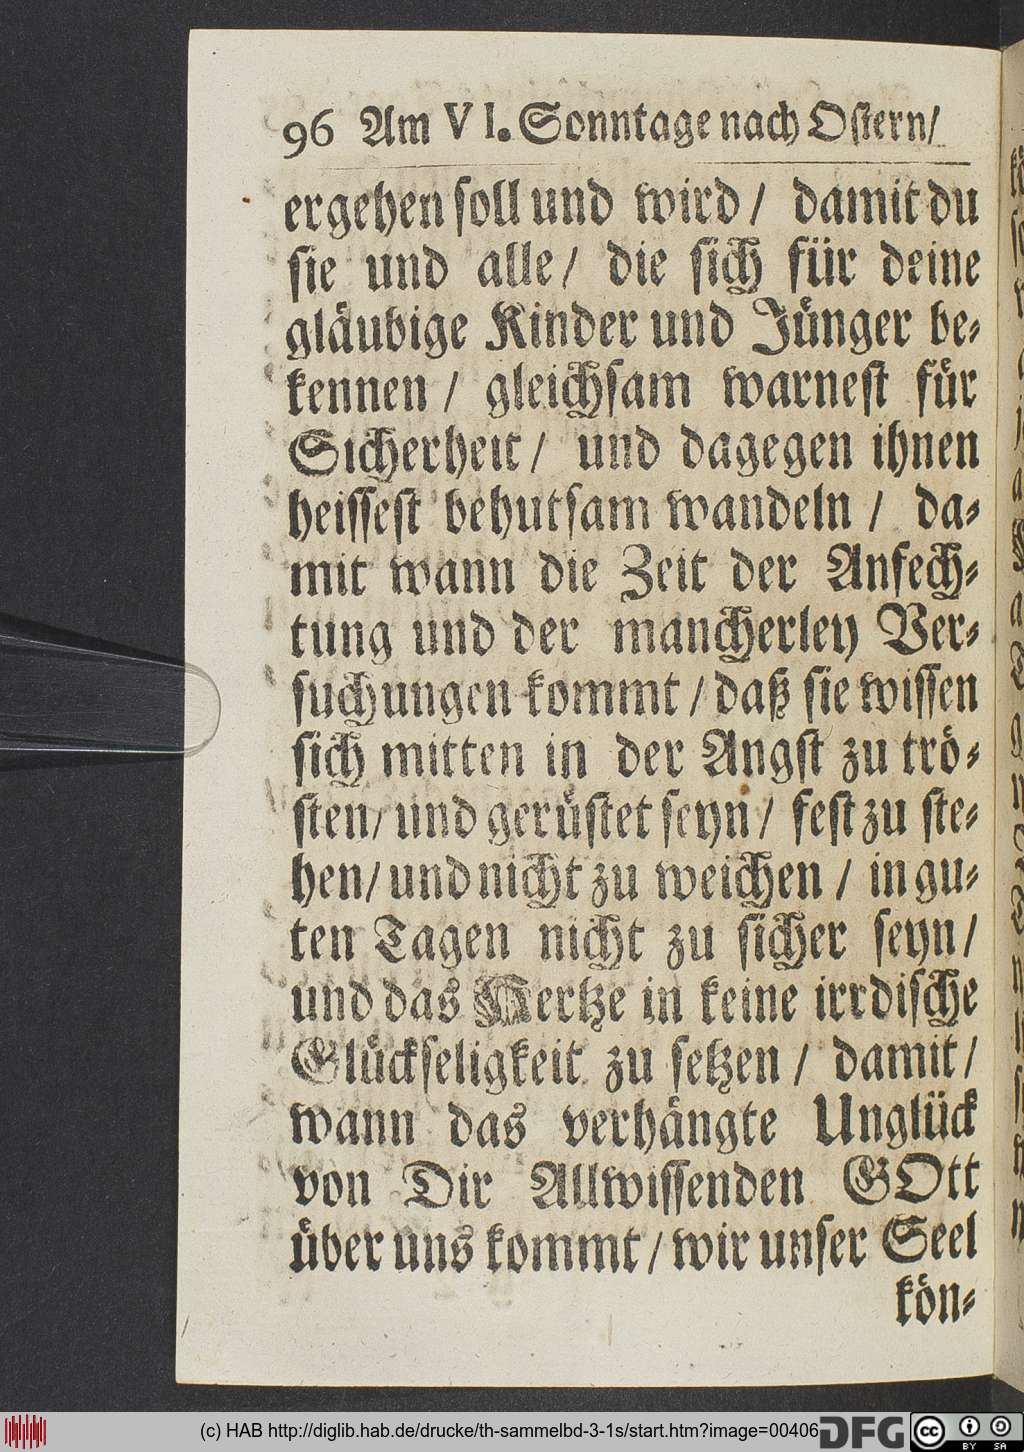 96 Am VI. Sonntage nach Ostern/
ergehen soll und wird / damit du
sie und alle / die sich für deine
gläubige Kinder und Jünger be-
kennen / gleichsam warnest für
Sicherheit / und dagegen ihnen
heissest behutsam wandeln / da-
mit wann die Zeit der Anfech-
tung und der mancherley Ver-
suchungen kommt / daß sie wissen
sich mitten in der Angst zu trö-
sten/ und gerüstet seyn / fest zu ste-
hen/ und nicht zu weichen / in gu-
ten Tagen nicht zu sicher seyn /
und das Hertze in keine irrdische
Glückseligkeit zu setzen / damit /
wann das verhängte Unglück
von Dir Allwissenden GOtt
über uns kommt / wir unser Seel
kön-
(c) HAB http://diglib.hab.de/drucke/th-sammelbd-3-1s/start.htm?image=00406
DFG
cc BY SA